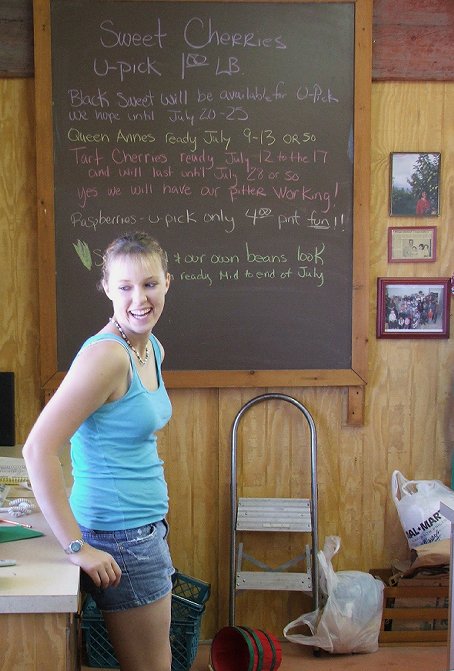 Sweet Cherries
U-pick 1.00 LB.
Black Sweet will be available for U-Pick
we hope until July 20-25
Queen Annes ready July 9-13 or so
Tart Cherries ready July 12 to the 17
and will last until July 28 or so
yes we will have our pitter working!
Raspberries - u-pick only 4.00 pint fun!!
& our own beans look
ready Mid to end of July
AL-MAR